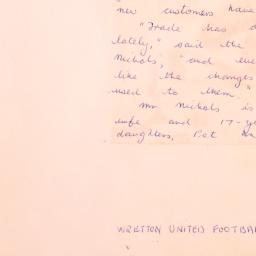 new customers have
"Trade has d
lately," said the
Nichols, "and eve
like the changes
used to them."
Mr Nichols is
wife and 17-ye
daughters, Pat an
WRETTON UNITED FOOTBA